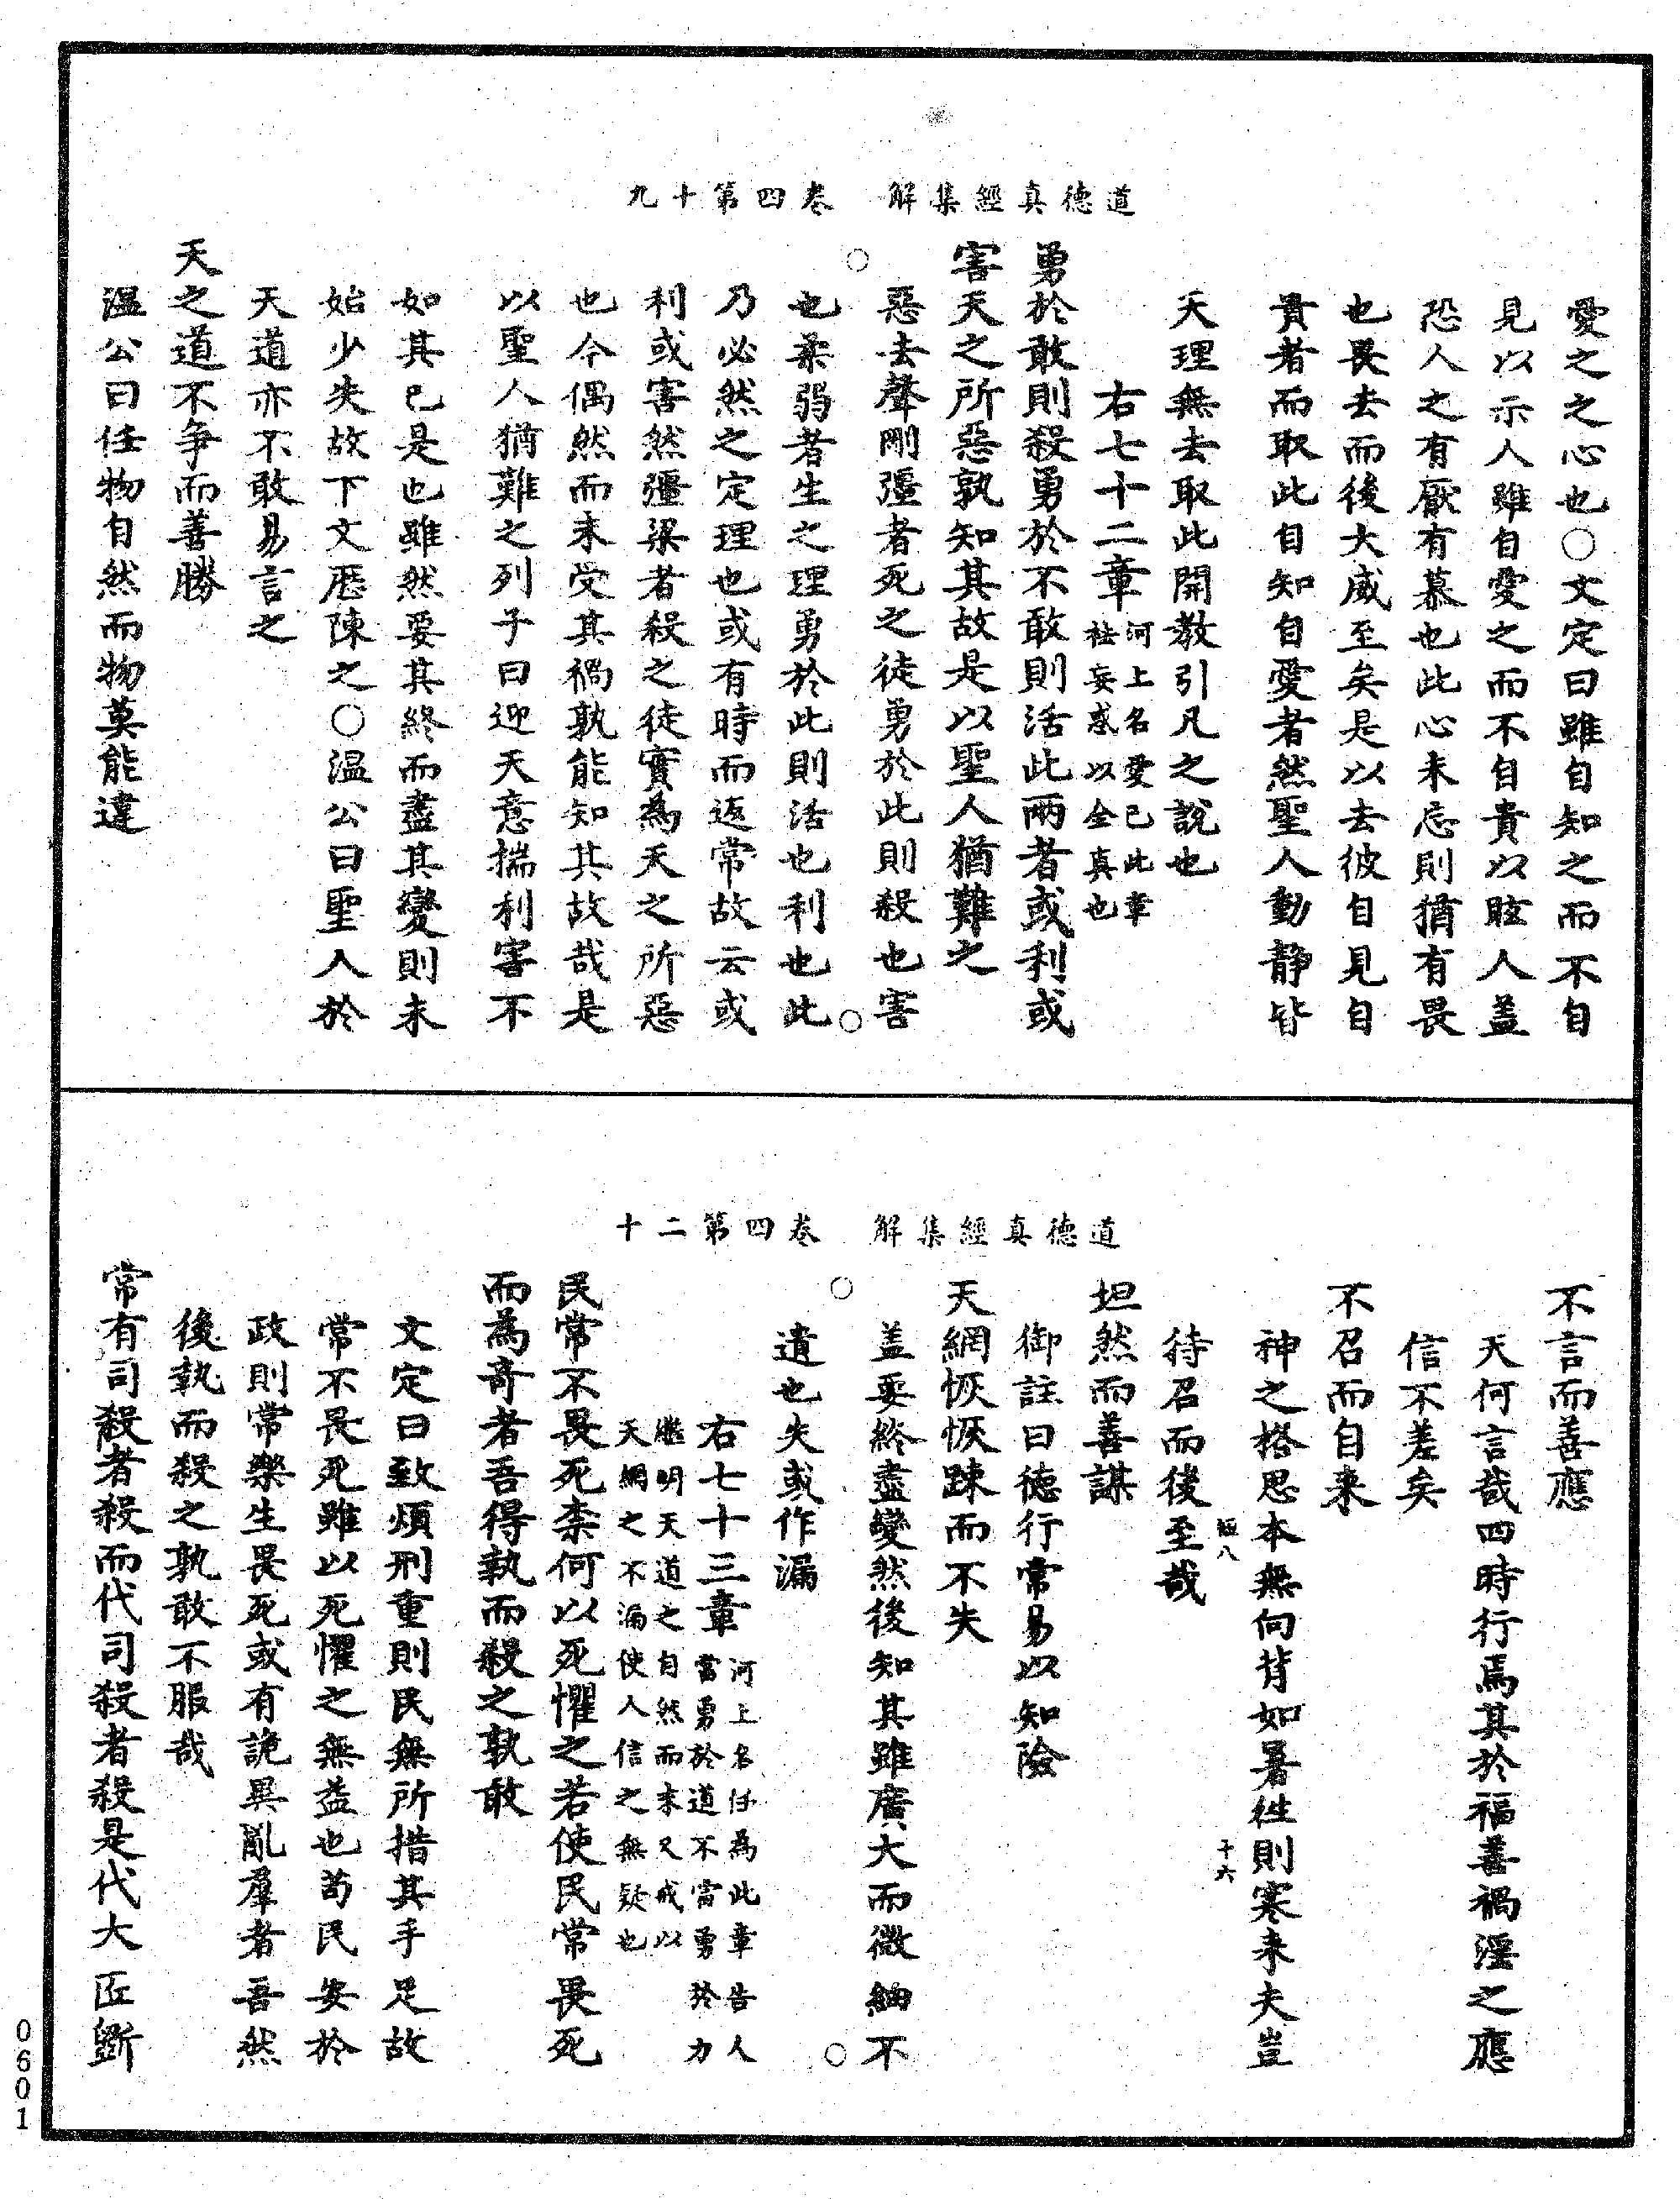 道德真經集解　卷四第十九
愛之之心也○文定曰雖自知之而不自
見以示人雖自愛之而不自貴以眩人盖
恐人之有厭有慕也此心未忘則猶有畏
也畏去而後大威至矣是以去彼自見自
貴者而取此自知自愛者然聖人動靜皆
天理無去取此開教引凡之說也
右七十二章河上名愛已此章
祛妄惑以全真也
勇於敢則殺勇於不敢則活此兩者或利或
害天之所惡孰知其故是以聖人猶難之
惡去聲剛彊者死之徒勇於此則殺也害
也柔弱者生之理勇於此則活也利也此
乃必然之定理也或有時而返常故云或
利或害然彊梁者殺之徒實為天之所惡
也今偶然而未受其禍孰能知其故哉是
以聖人猶難之列子曰迎天意揣利害不
如其已是也雖然要其終而盡其變則未
始少失故下文歷陳之○温公曰聖人於
天道亦不敢易言之
天之道不争而善勝
温公曰任物自然而物莫能違
道德真經集解　卷四第二十
不言而善應
天何言哉四時行焉其於福善禍淫之應
信不差矣
不召而自来
神之格思本無向背如暑徃則寒来夫豈
短八　十六
待召而後至哉
坦然而善謀
御註曰德行常易以知險
天網恢恢踈而不失
盖要終盡變然後知其雖廣大而微細不
遺也失或作漏
右七十三章河上名任為此章告人
當勇於道不當勇於力
繼明天道之自然而来又戒以
天網之不漏使人信之無疑也
民常不畏死柰何以死懼之若使民常畏死
而為奇者吾得執而殺之孰敢
文定曰政煩刑重則民無所措其手足故
常不畏死雖以死懼之無益也苟民安於
政則常樂生畏死或有詭異亂羣者吾然
後執而殺之孰敢不服哉
常有司殺者殺而代司殺者殺是代大匠斲
0601